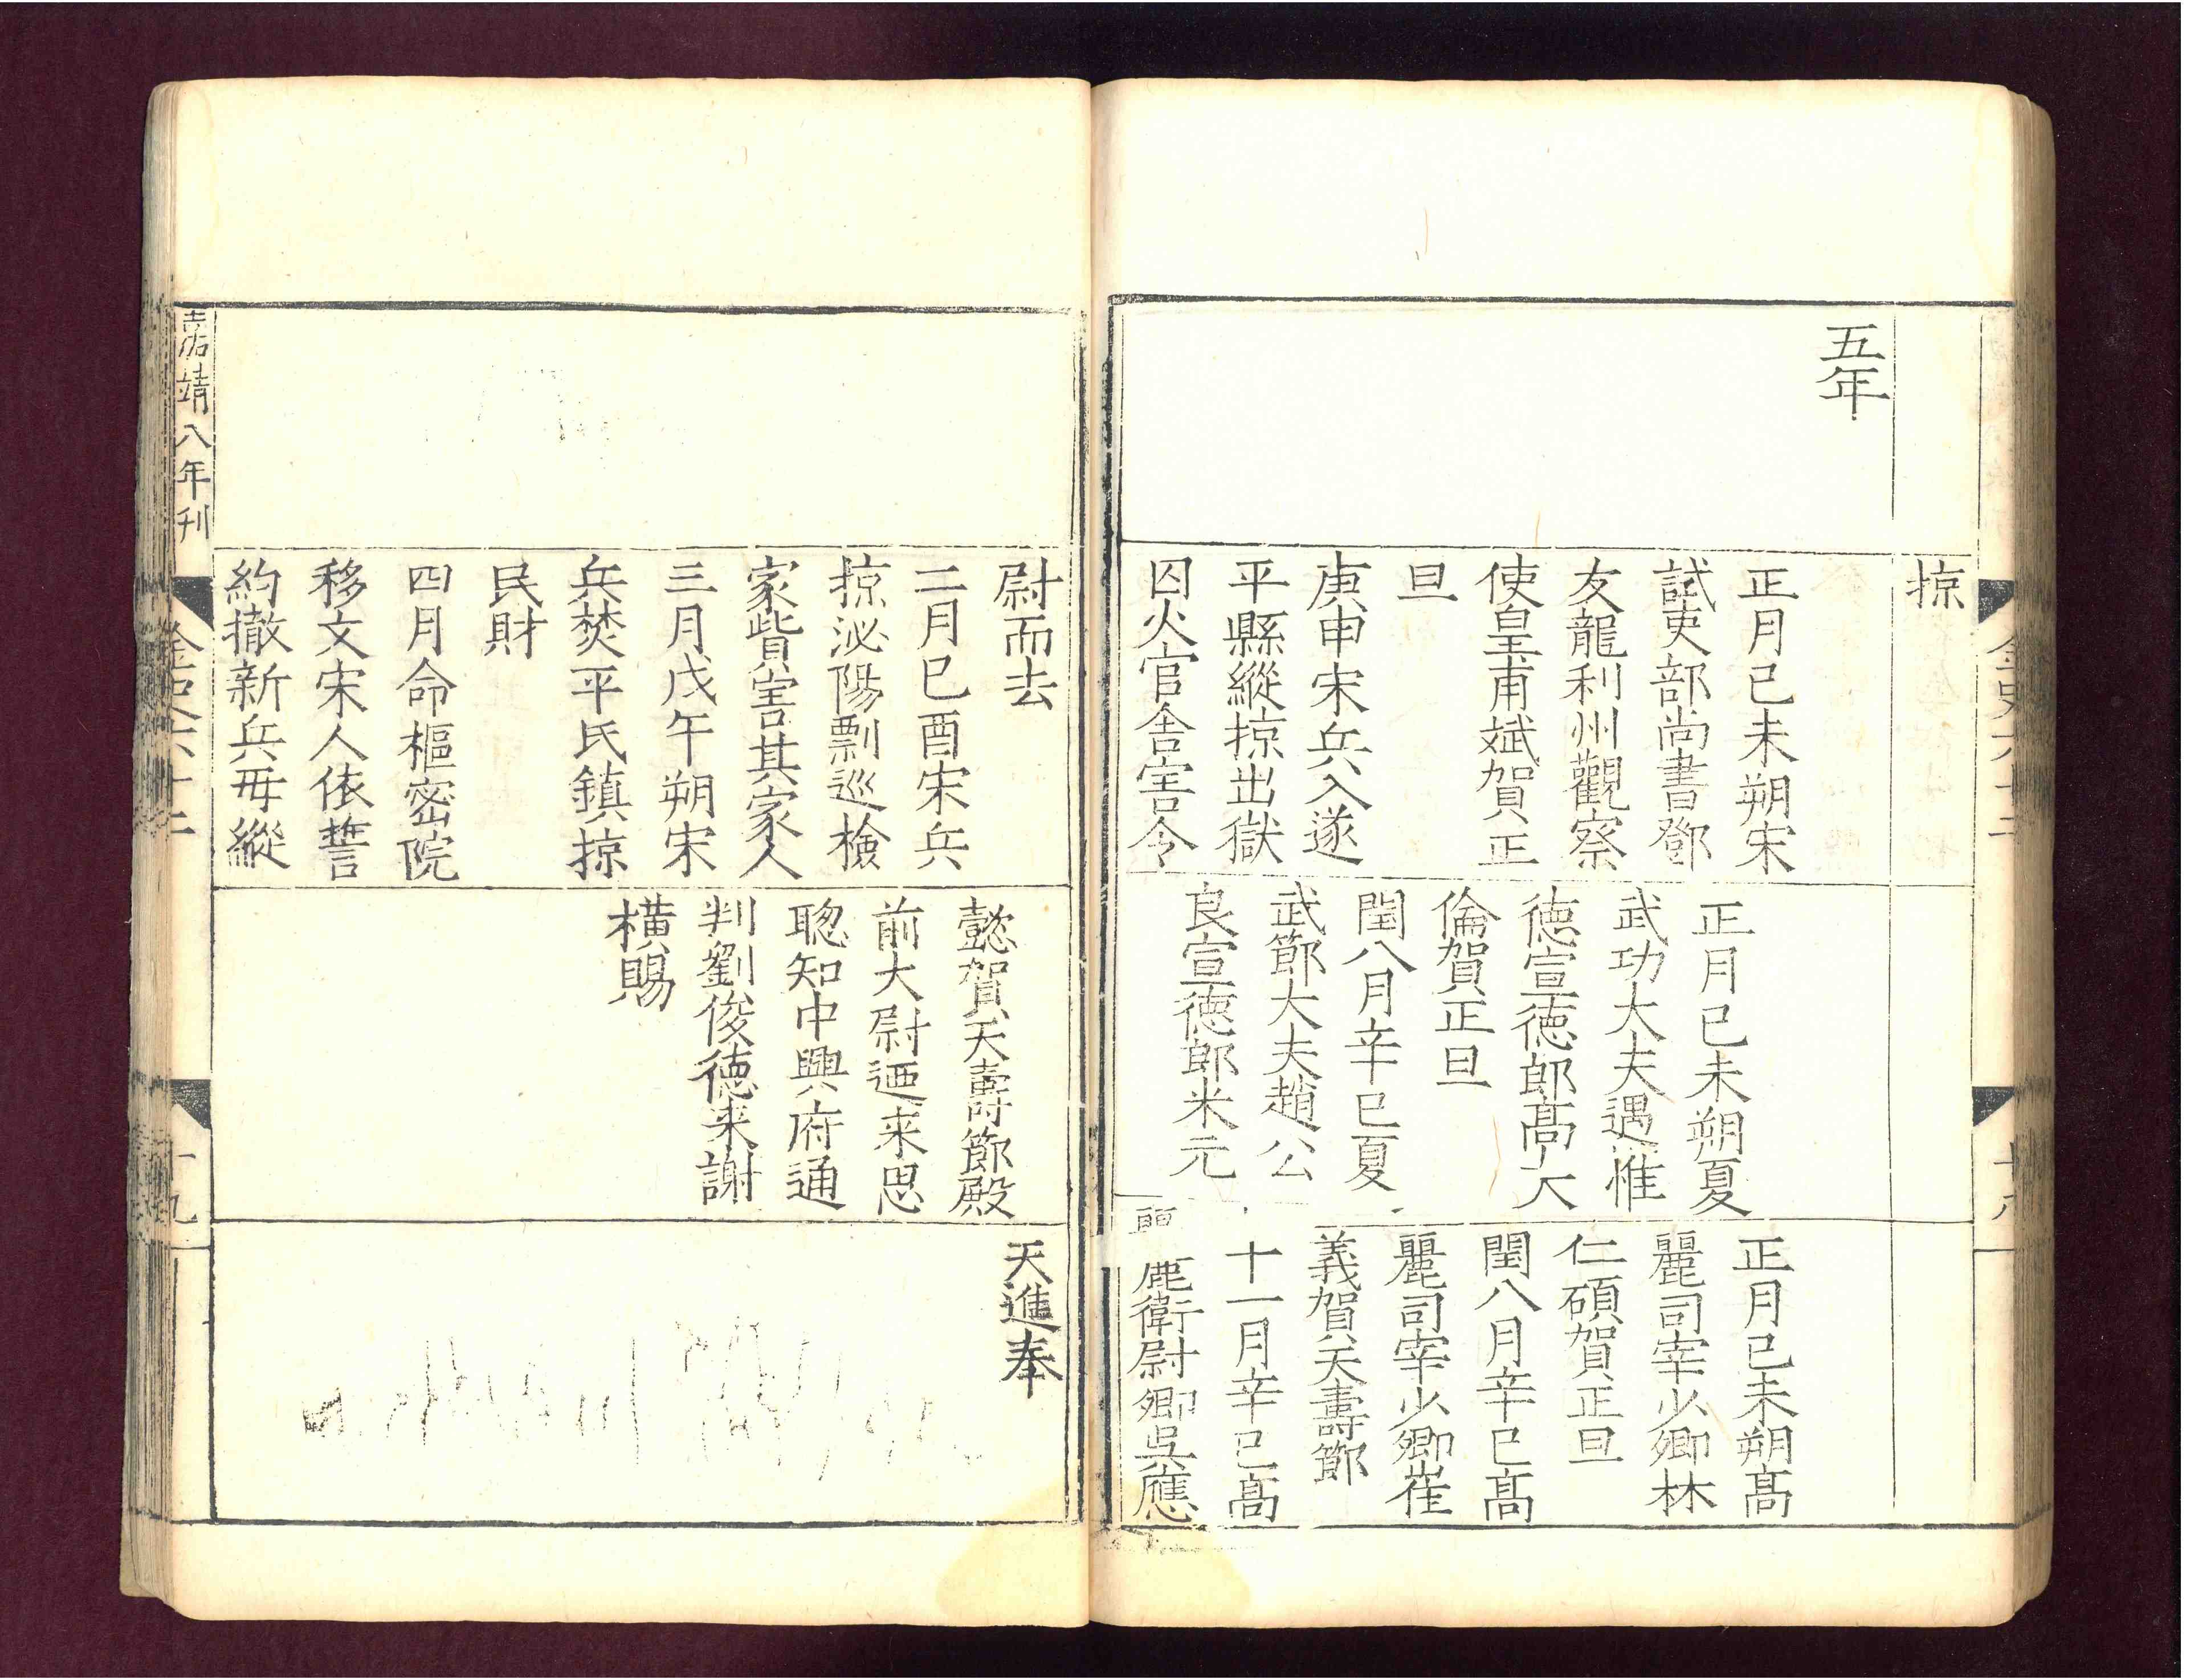 掠
五年
正月己未朔宋
試吏部尚書鄧
友龍利州觀察
使皇甫斌賀正
旦
庚申宋兵入遂
平縣縱掠出獄
囚火官舍害令
正月己未朔夏
武功大夫遇惟
德宣德郎髙大
倫賀正旦
閏八月辛巳夏
武節大夫趙公
良宣德郎米元
正月己未朔髙
麗司宰少卿林
仁碩賀正旦
閏八月辛巳髙
麗司宰少卿崔
義賀天壽節
十一月辛巳髙
麗衛尉卿吳應
金史六十二
十八
尉而去
二月己酉宋兵
掠泌陽剽巡檢
家貲害其家人
三月戊午朔宋
兵焚平氏鎮掠
民財
四月命樞密院
移文宋人依誓
約撤新兵毋縱
懿賀天壽節殿
前大尉迺来思
聦知中興府通
判劉俊德来謝
橫賜
天進奉
嘉靖八年刊
金史六十二
十九